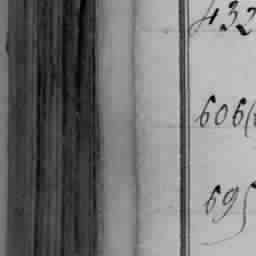 432
606(
695